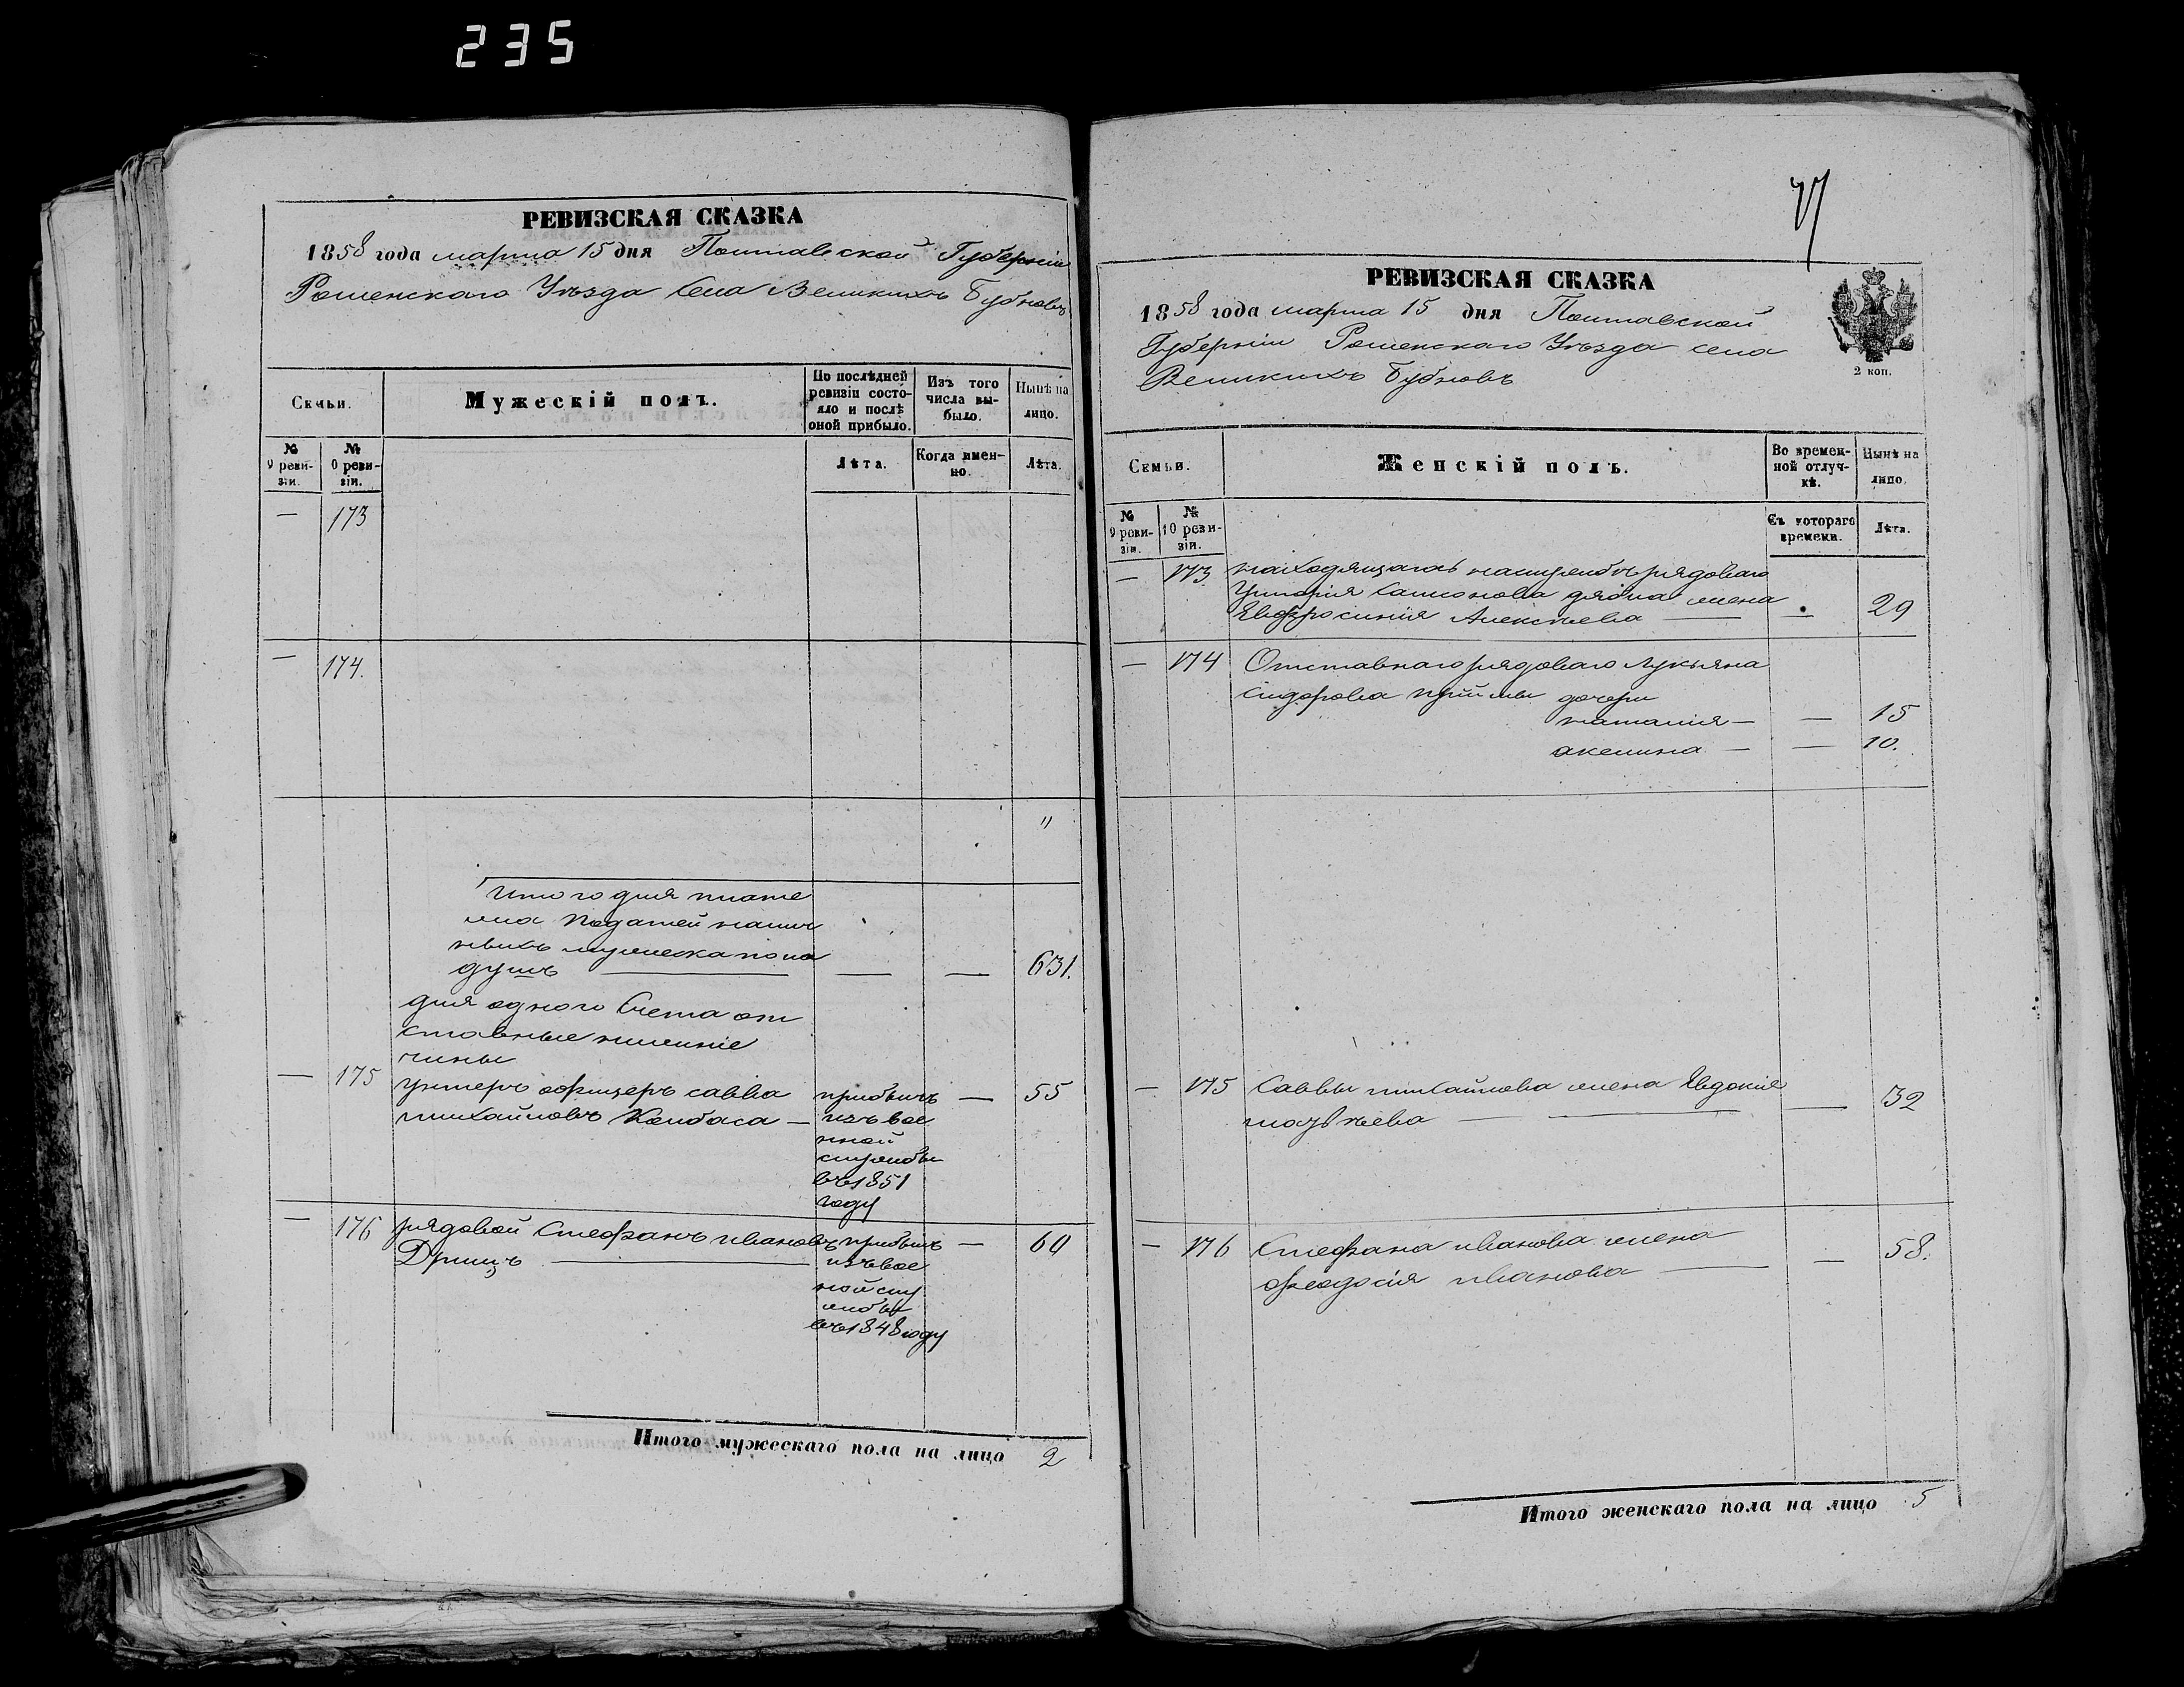 235
РЕВИЗСКАЯ СКАЗКА
1858 года марта 15 дня Полтавской Губерніи
Роменскаго Уѣзда Села Великихъ Бубновъ
Семьи.
Мужескій полъ.
По послѣдней
ревизіи состо-
яло и послѣ
оной прибыло.
Изъ того
числа вы-
было.
Нынѣ на
лицо.
№
9 реви-
зіи.
№
0 реви-
зіи.
Лѣта.
Когда имен-
но.
Лѣта.
— 173
— 174.
"
Итого для плате
жа податей налич
ныхъ мужеска пола
душъ — — — 631.
для одного Счета от
ставные нижніе
чины
— 175 унтеръ офицеръ савва прибылъ — 55
михайловъ Колбаса — изъ вое
нной
службы
въ 1851
году
— 176 рядовой Стефанъ ивановъ прибылъ — 60
Дрищъ — изъ вое
ной слу
жбы
въ 1848 году
Итого мужескаго пола на лицо 2
РЕВИЗСКАЯ СКАЗКА
1858 года марта 15 дня Полтавской
Губерніи Роменскаго Уѣзда села
Великихъ Бубновъ
2 коп.
Семьи.
Женскій полъ.
Во времен-
ной отлуч-
кѣ.
Нынѣ на
лицо.
№
9 реви-
зіи.
№
10 реви-
зіи.
Съ котораго
времени.
Лѣта.
— 173 находящагась наслужбѣ рядоваго
жена
Евфросинія Алексѣева — — 29
— 174 Отставнаго рядоваго Лукьяна
Сидорова дочери
наталія — — 15
акелина — — 10.
— 175 Саввы михайлова жена Евдокія
— — 32
— 176 Стефана иванова жена
феодосія иванова — — 58.
Итого женскаго пола на лицо 5